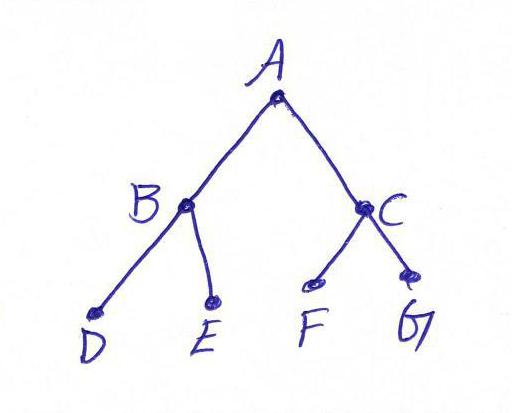 A
B C
D E F G